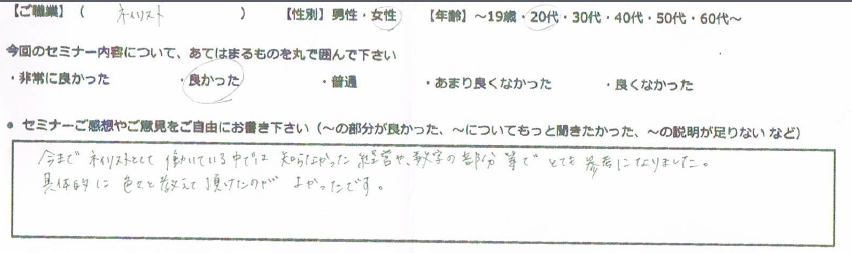 【ご職業】（ ネイリスト ） 【性別】男性・女性 【年齢】～19歳・20代・30代・40代・50代・60代～
今回のセミナー内容について、あてはまるものを丸で囲んで下さい
・非常に良かった ・良かった ・普通 ・あまり良くなかった ・良くなかった
● セミナーご感想やご意見をご自由にお書き下さい（～の部分が良かった、～についてもっと聞きたかった、～の説明が足りない など）
今まで ネイリストとして 働いている中では 知らなかった 経営や、数字の部分 等で とても 参考になりました。
具体的に 色々と教えて頂けたのが よかったです。